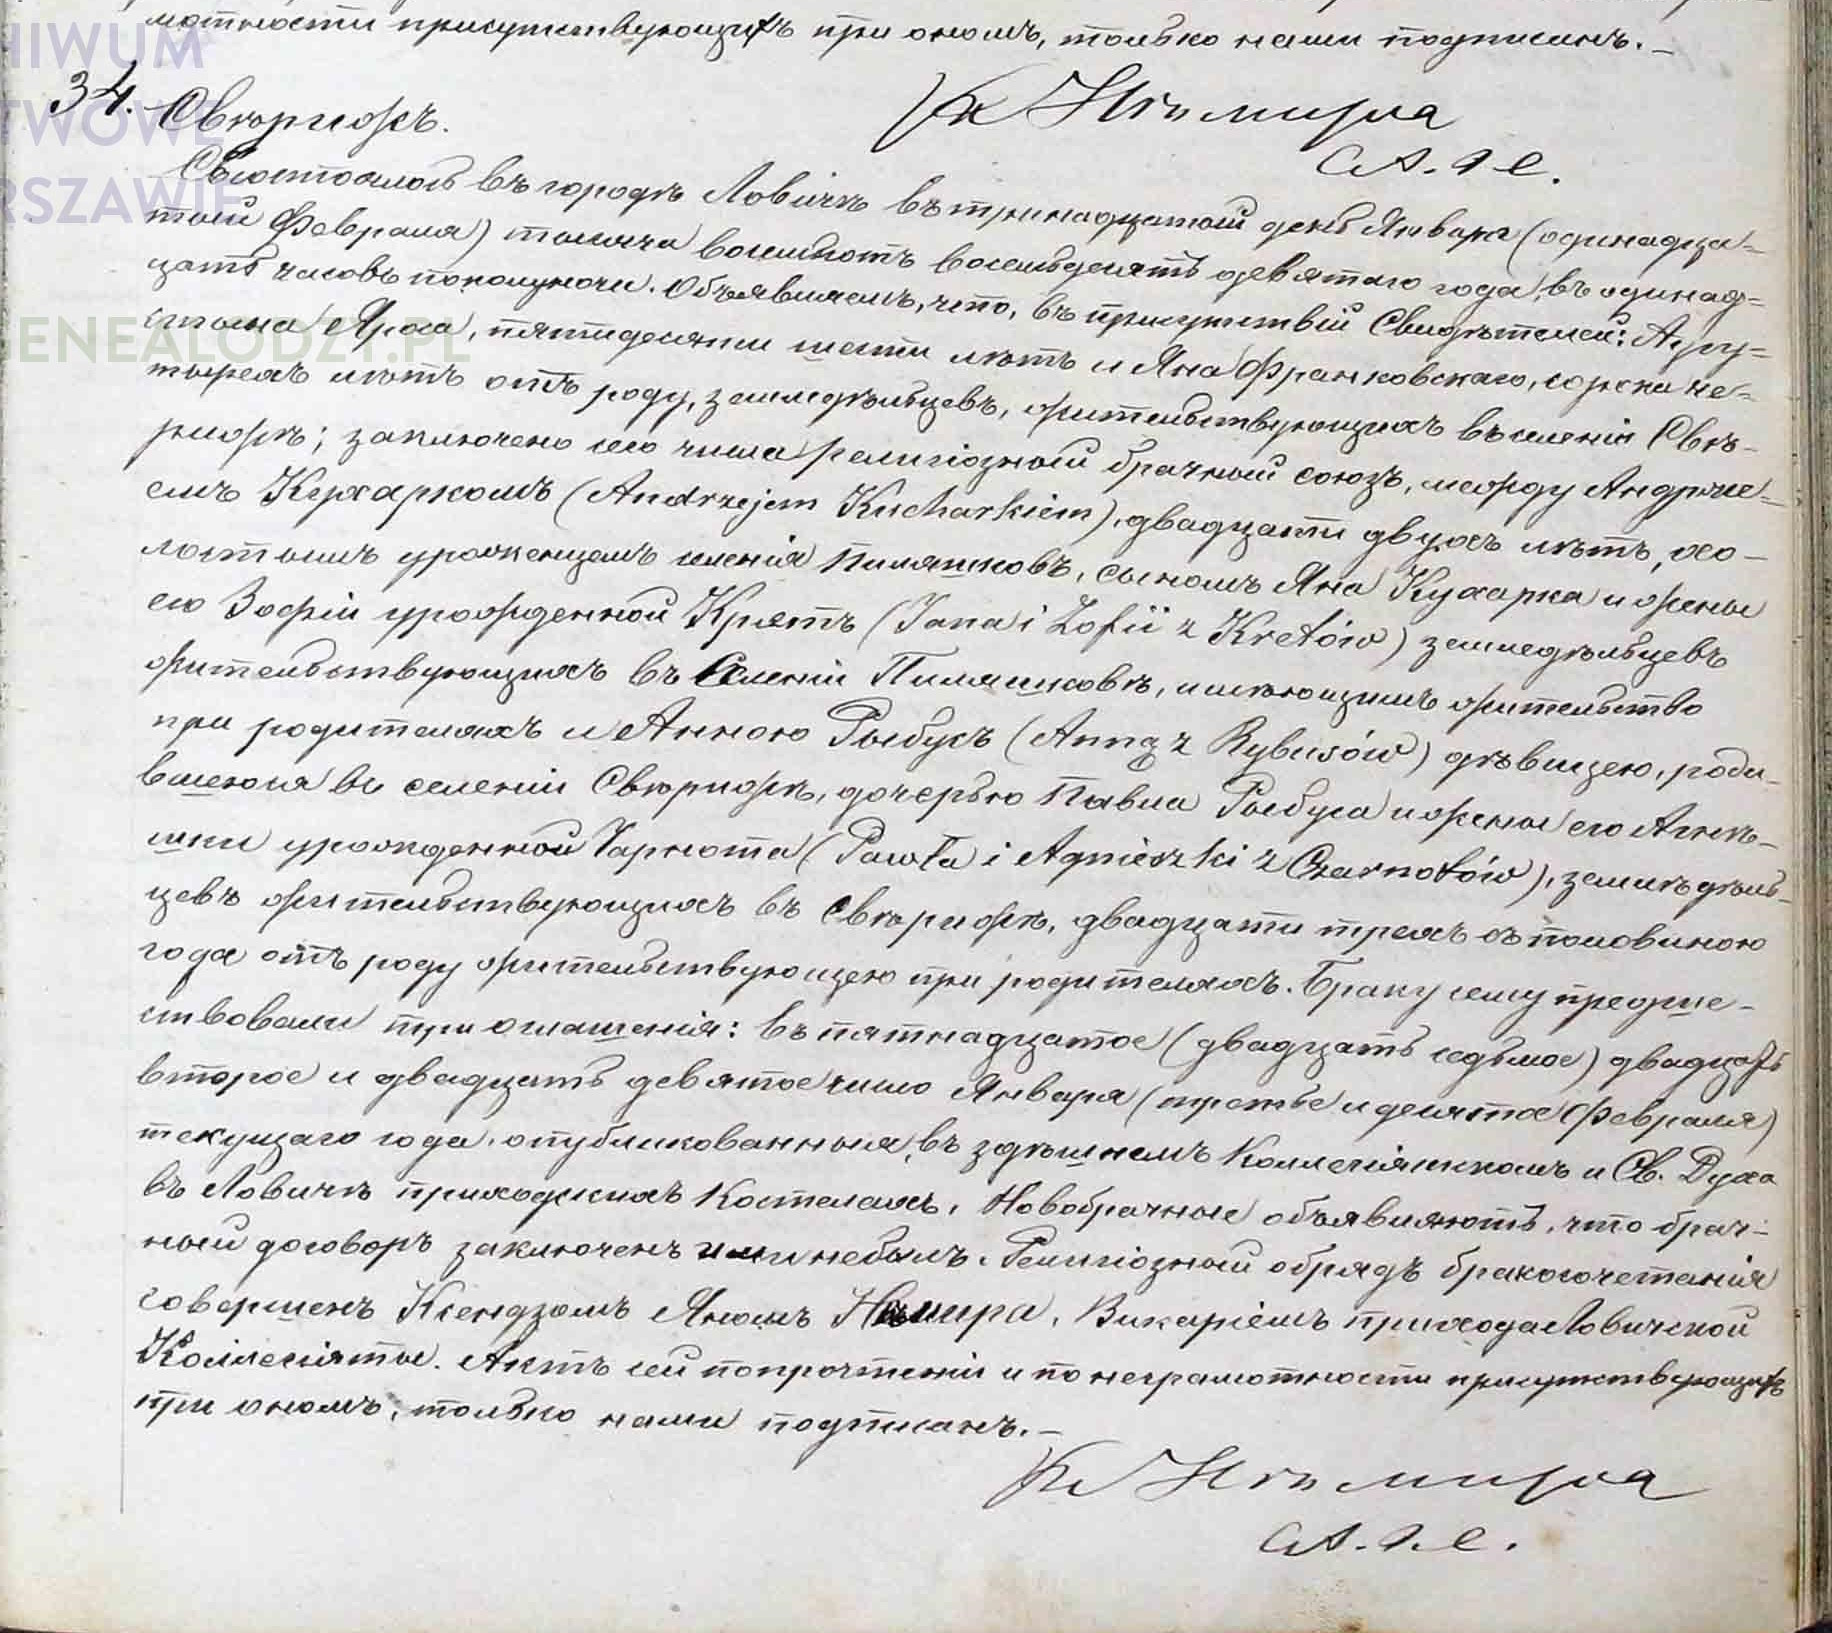 мотности присутствующихъ при ономъ, только нами подписанъ. —
Кс Нѣмира
34. Свѣрижъ.
С.А.Г.С.
Состоялось въ городѣ Ловичѣ въ тринадцатый день Января (одинадца-
тый Февраля) тысяча восемьсотъ восемьдесятъ девятаго года, въ одинад-
цать часовъ пополуночи. Объявляемъ, что, въ присутствіи Свидѣтелей: Авгу-
стына Яроса, пятидесяти шести лѣтъ и Яна Франковскаго, сорока че-
тырехъ лѣтъ отъ роду, земледѣльцевъ, жительствующихъ въ селеніи Свѣ-
рижѣ; заключено сего числа религіозный брачный союзъ, между Андрже-
емъ Кухаркомъ (Andrzejem Kucharkiem), двадцати двухъ лѣтъ, хо-
лостымъ уроженцемъ селенія Пиляшковъ, сыномъ Яна Кухарка и жены
его Зофіи урожденной Кретъ (Jana i Zofii z Kretów) земледѣльцевъ
жительствующихъ въ Селеніи Пиляшковѣ, имѣющимъ жительство
при родителяхъ и Анною Рыбусъ (Anną z Rybusów) дѣвицею, роди-
вшеюся въ селеніи Свѣрижѣ, дочерью Павла Рыбуса и жены его Агнѣ-
шки урожденной Чарнота (Pawła i Agnieszki z Czarnotów), земледѣль-
цевъ жительствующихъ въ Свѣрижѣ, двадцати трехъ съ половиною
года отъ роду жительствующею при родителяхъ. Браку сему предше-
ствовали три оглашенія: въ пятнадцатое (двадцать седьмое) двадцать
второе и двадцать девятое число Января (третье и десятое Февраля)
текущаго года, опубликованныя, въ здѣшнемъ Коллегіяцкомъ и Св. Духа
въ Ловичѣ приходскихъ Костелахъ. Новобрачные объявляютъ, что брач-
ный договоръ заключенъ ими небылъ. Религіозный обрядъ бракосочетанія
совершенъ Ксендзомъ Яномъ Нѣмира, Викаріемъ прихода Ловичской
Коллегіяты. Актъ сей попрочтеніи и по неграмотности присутствующихъ
при ономъ, только нами подписанъ. —
Кс Нѣмира
С.А.Г.С.
ARCHIWUM
GENEALODZY.PL